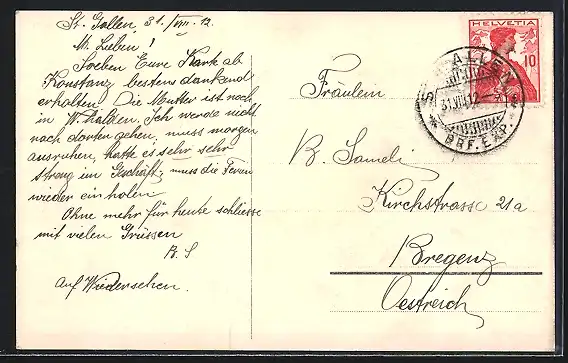 St. Gallen, 31./VIII. 12.
M. Lieben!
Soeben Eure Karte ab
Konstanz bestens dankend
erhalten. Die Mutter ist noch
in W.halden. Ich werde nicht
nach dorten gehen, muss morgen
ausruhen, hatte es sehr sehr
streng im Geschäft, muss die Ferien
wieder ein holen.
Ohne mehr für heute schliesse
mit vielen Grüssen
B. S
Auf Wiedersehen.
HELVETIA
10
ST. GALLEN
31.VIII.12
BRF. EXP.
Fräulein
B. Sameli
Kirchstrasse 21a
Bregenz
Oestreich